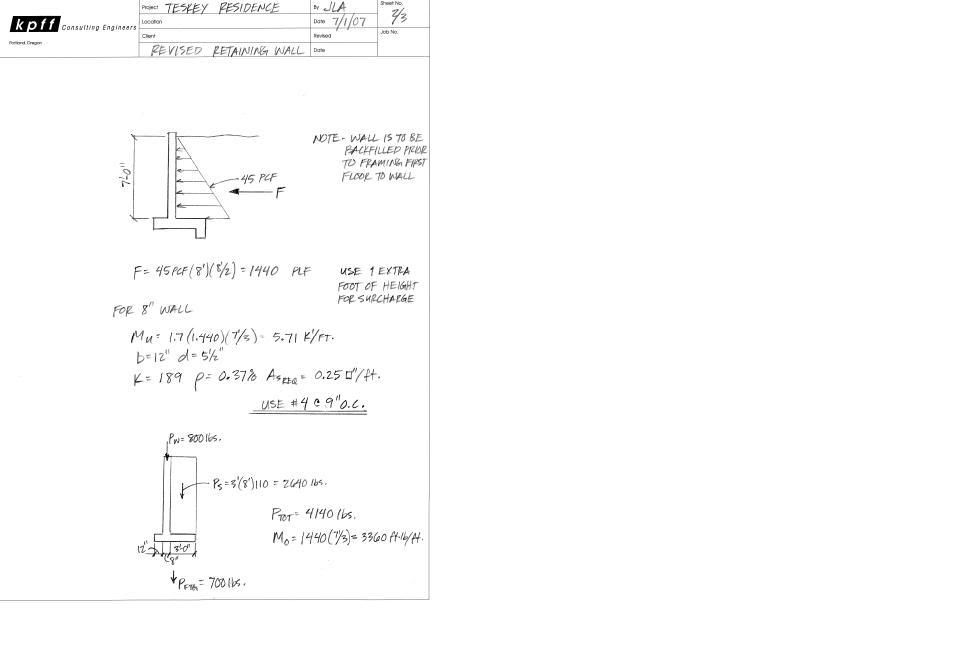 kpff Consulting Engineers
Portland, Oregon
Project TESKEY RESIDENCE
By JLA
Sheet No. 2/3
Location
Date 7/1/07
Client
Revised
Job No.
REVISED RETAINING WALL
Date
NOTE - WALL IS TO BE
BACKFILLED PRIOR
TO FRAMING FIRST
FLOOR TO WALL
7'-0"
45 PCF
F
F = 45 PCF (8')(8'/2) = 1440 PLF
USE 1 EXTRA
FOOT OF HEIGHT
FOR SURCHARGE
FOR 8" WALL
Mu = 1.7 (1.440)(7'/3) = 5.71 K'/FT.
b = 12" d = 5 1/2"
K = 189 ρ = 0.37% As REQ = 0.25 □"/ft.
USE #4 @ 9" O.C.
Pw = 800 lbs.
Ps = 3'(8')110 = 2640 lbs.
PTOT = 4140 lbs.
Mo = 1440 (7'/3) = 3360 ft-lb/ft.
12"
3'-0"
8"
PFTG = 700 lbs.